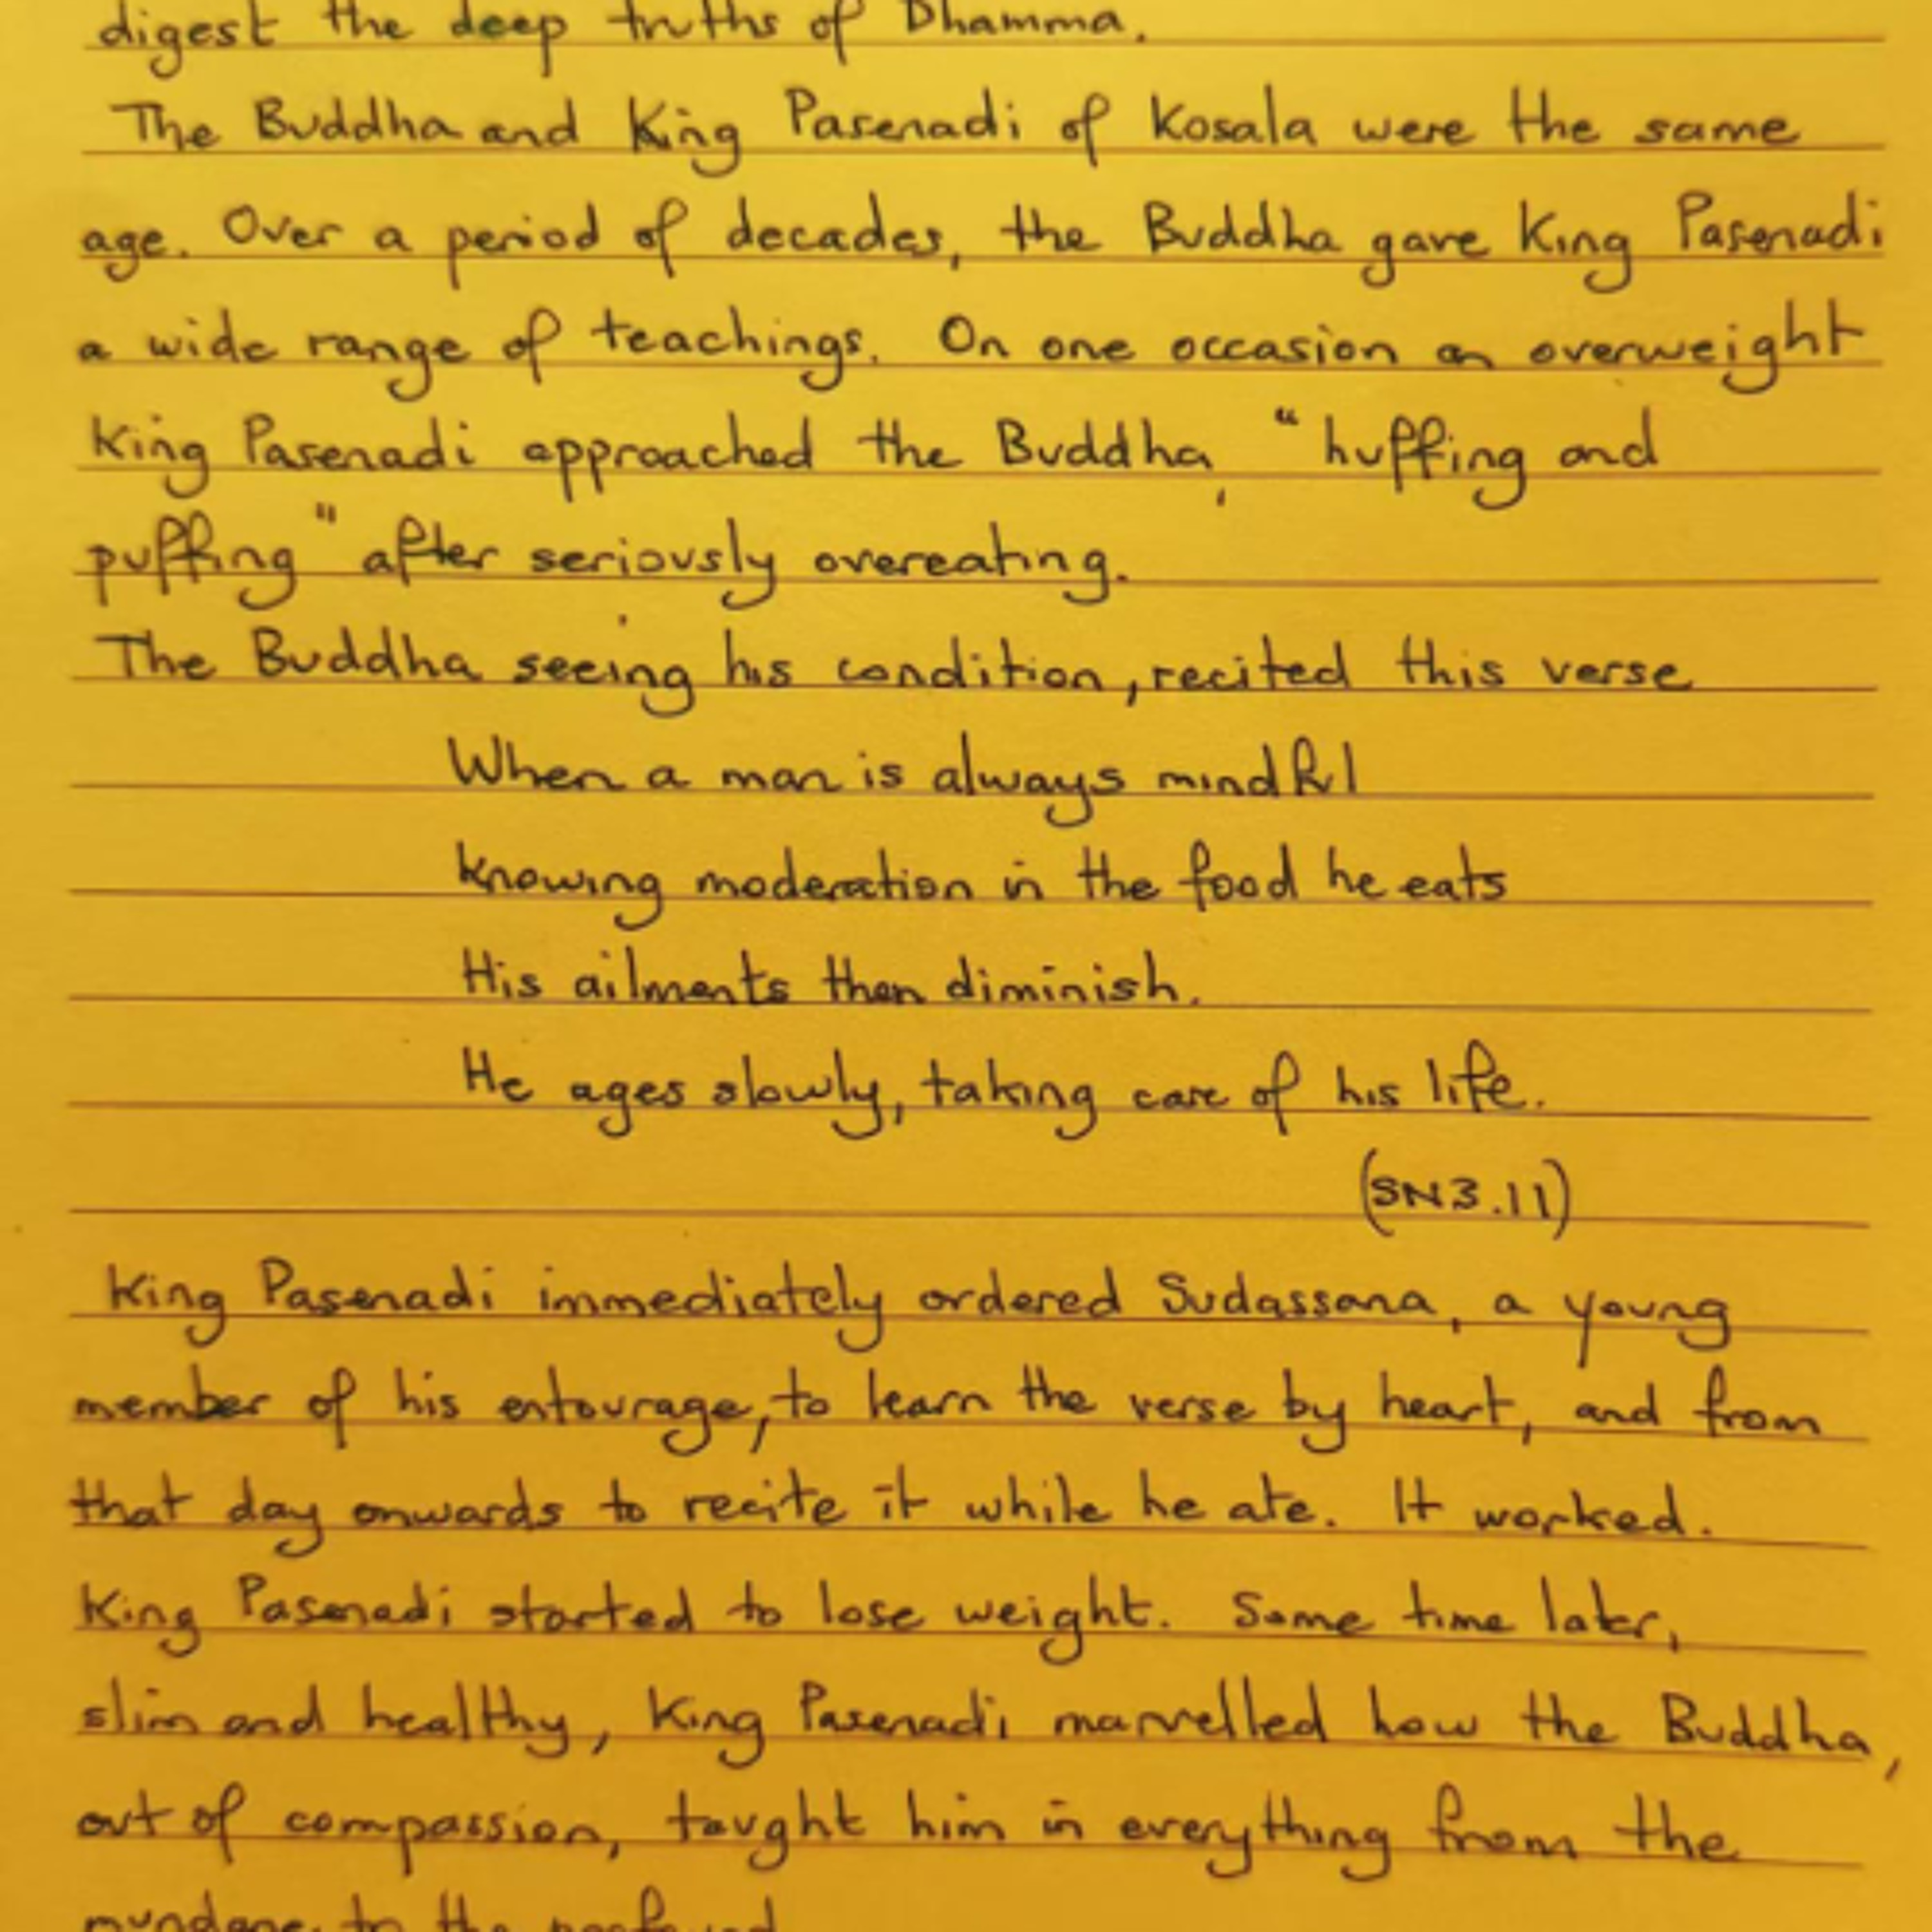 digest the deep truths of Dhamma.
The Buddha and King Pasenadi of Kosala were the same
age. Over a period of decades, the Buddha gave King Pasenadi
a wide range of teachings. On one occasion an overweight
King Pasenadi approached the Buddha, "huffing and
puffing" after seriously overeating.
The Buddha seeing his condition, recited this verse
When a man is always mindful
knowing moderation in the food he eats
His ailments then diminish.
He ages slowly, taking care of his life.
(SN3.11)
King Pasenadi immediately ordered Sudassana, a young
member of his entourage, to learn the verse by heart, and from
that day onwards to recite it while he ate. It worked.
King Pasenadi started to lose weight. Some time later,
slim and healthy, King Pasenadi marvelled how the Buddha,
out of compassion, taught him in everything from the
mundane to the profound